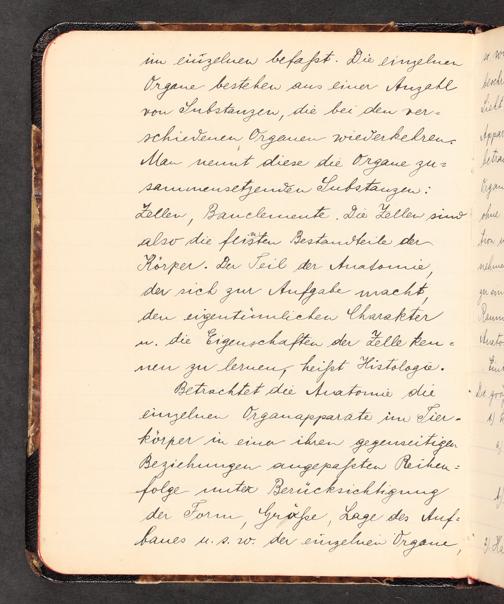 im einzelnen befaßt. Die einzelnen
Organe bestehen aus einer Anzahl
von Substanzen, die bei den ver=
schiedenen Organen wiederkehren.
Man nennt diese die Organe zu=
sammensetzenden Substanzen:
Zellen, Bauelemente. Die Zellen sind
also die Bestandteile der
Körper. Der Teil der Anatomie,
der sich zur Aufgabe macht,
den eigentümlichen Charakter
u. die Eigenschaften der Zelle ken=
nen zu lernen, heißt Histologie.
Betrachtet die Anatomie die
einzelnen Organapparate im Tier=
körper in einer ihren gegenseitigen
Beziehungen angepaßten Reihen=
folge unter Berücksichtigung
der Form, Größe, Lage des Auf=
baues u. s. w. der einzelnen Organe,